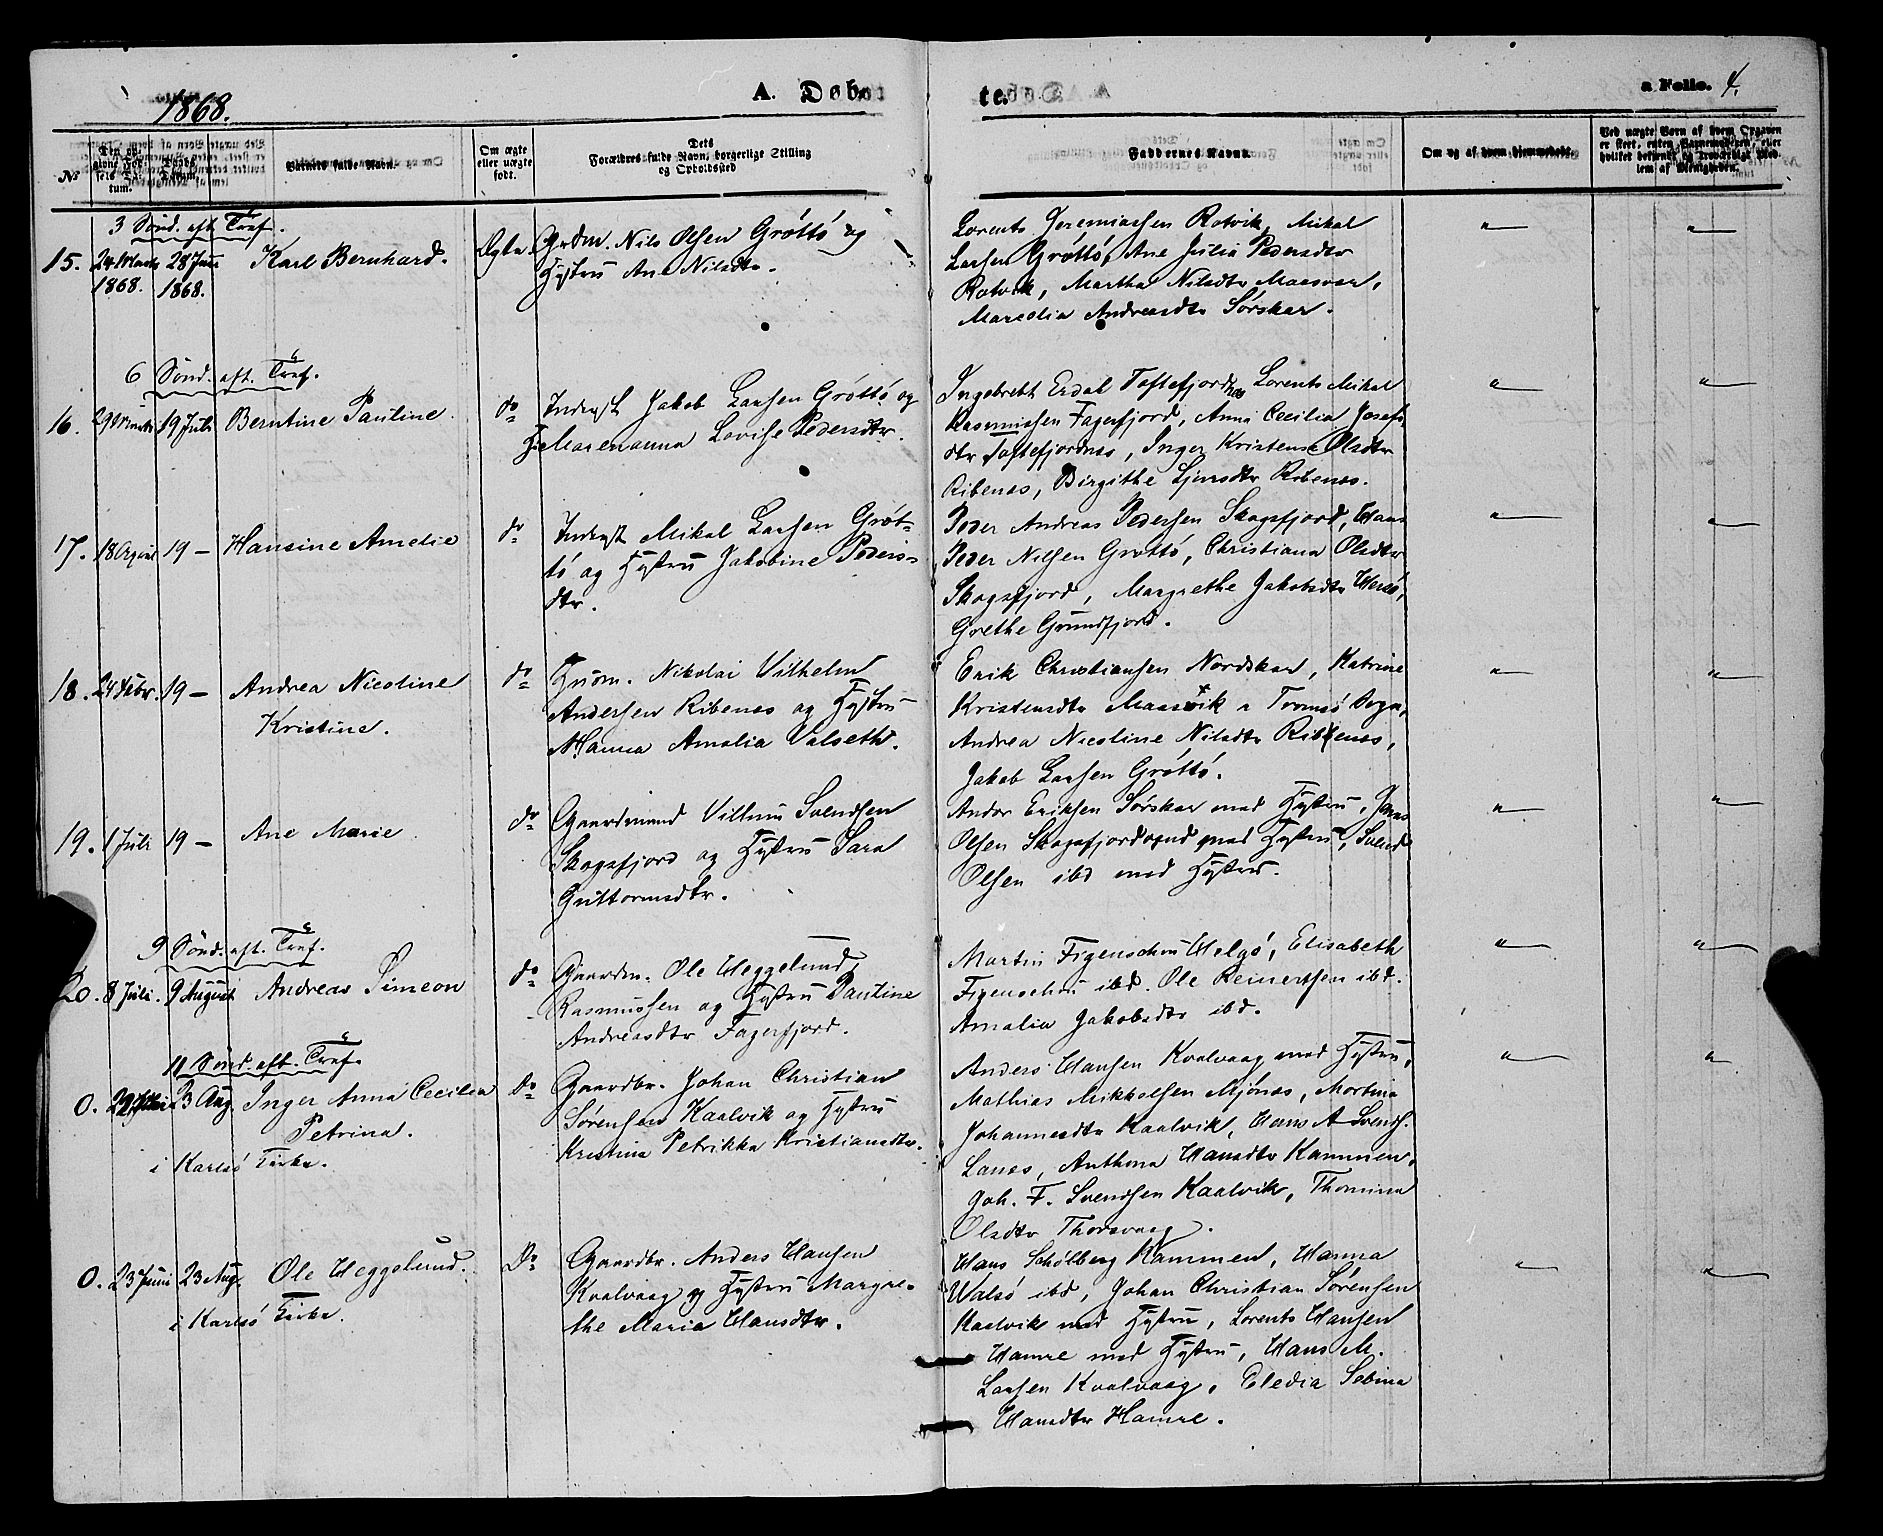 1868.
A. Døb-
te.
a Folio. 4.
No
Den op-
givne Fød-
sels Da-
tum.
Daabs
Datum.
Barnets fulde Navn.
Om ægte
eller uægte
født.
Dets
Forældres fulde Navn, borgerlige Stilling
og Opholdssted
Faddernes Navne.
Om og af hvem hjemmedøbt.
Ved uægte Børn af hvem Opgaven
er skeet, enten Barnemoderen, eller
hvilket bekjendt og troværdigt Med-
lem af Menigheden.
3 Sønd. aft. Tref.
15. 24 Marts 1868. 28 Juni 1868. Karl Bernhard.
Ægte.
Grdm. Nils Olsen Grøttø og
Hystru Ane Nilsdtr.
Lorents Jeremiassen Rotvik, Mikal
Larsen Grøttø, Ane Julia Pedersdtr
Rotvik, Martha Nilsdtr Maasvær,
Maredia Andreasdtr Sørskar.
6 Sønd. aft. Tref.
16. 29 Marts 19 Juli Berntine Pauline.
do
Inderst Jakob Larsen Grøttø og
H. Marenanna Lovise Pedersdtr.
Ingebrekt Erdal Toftefjordnes Lorents Mikal
Rasmussen Fagerfjord, Anna Cecilia Josefs
dtr Toftefjordnes, Inger Kristense Olsdtr
Ribenes, Birgithe Ljensdtr Ribenes.
17. 18 April 19 — Hansine Amelie
do
Inderst Mikal Larsen Grøt-
tø og Hystru Jakobine Peders-
dtr.
Peder Andreas Pedersen Skogsfjord, Hans
Peder Nilsen Grøttø, Christiana Olsdtr
Skogsfjord, Margrethe Jakobsdtr Hersø,
Grethe Grundfjord.
18. 24 Febr. 19 — Andrea Nicoline
Kristine.
do
Husm. Nikolai Vilhelm
Andersen Ribenes og Hystru
Hanna Amalia Valseth.
Erik Christiansen Nordskar, Katrine
Kristensdtr Maasvik i Tromsø Sogn,
Andrea Nicoline Nilsdtr Ribenes,
Jakob Larsen Grøttø.
19. 1 Juli 19 — Ane Marie.
do
Gaardmand Villum Svendsen
Skogsfjord og Hystru Sara
Guttormsdtr.
Andor Eriksen Sørskar med Hystru, Jens
Olsen Skogsfjordvand med Hystru, Svend
Olsen ibd med Hystru.
9 Sønd. aft. Tref.
20. 8 Juli. 9 August Andreas Simeon
do
Gaardm. Ole Heggelund
Rasmussen og Hystru Pauline
Andreasdtr Fagerfjord.
Martin Figenschou Helgø, Elisabeth
Figenschou ibd. Ole Reinertsen ibd.
Amalia Jakobsdtr ibd.
11 Sønd. aft. Tref.
0. 23 Aug. Inger Anna Cecilia
Petrina.
i Karlsø Kirke.
Do
Gaardbr. Johan Christian
Sørensen Kaalvik og Hystru
Kristina Petrikka Kristiansdtr.
Anders Hansen Kvalvaag med Hystru,
Mathias Mikkelsen Mjønes, Martina
Johannesdtr Kaalvik, Hans A Svends.
Lanes, Anthona Hansdtr Kammen,
Joh. F. Svendsen Kaalvik, Thomina
Olsdtr Thorsvaag.
0. 23 Juni 23 Aug. Ole Heggelund.
i Karlsø Kirke.
Do
Gaardbr. Anders Hansen
Kvalvaag og Hystru Margre-
the Maria Hansdtr.
Hans Schølberg Kammen, Hanna
Walsø ibd, Johan Christian Sørensen
Kaalvik med Hystru, Lorents Hansen
Hamre med Hystru, Hans M.
Larsen Kvalvaag, Eledia Sebina
Hansdtr Hamre.